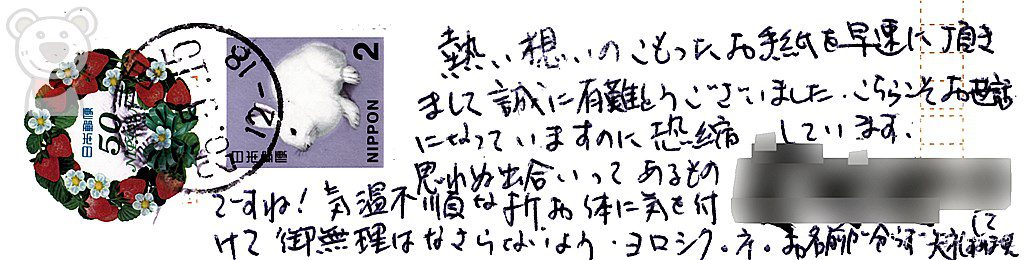 熱い想いのこもったお手紙を早速に頂き
まして誠に有難とうございました。こちらこそお世話
になっていますのに恐縮しています。
思わぬ出合いってあるもの
ですね!気温不順な折お体に気を付
けて御無理はなさらないよう・ヨロシク。ネ。お名前が分らず失礼して
日本郵便
50
12-18
2
NIPPON
日本郵便